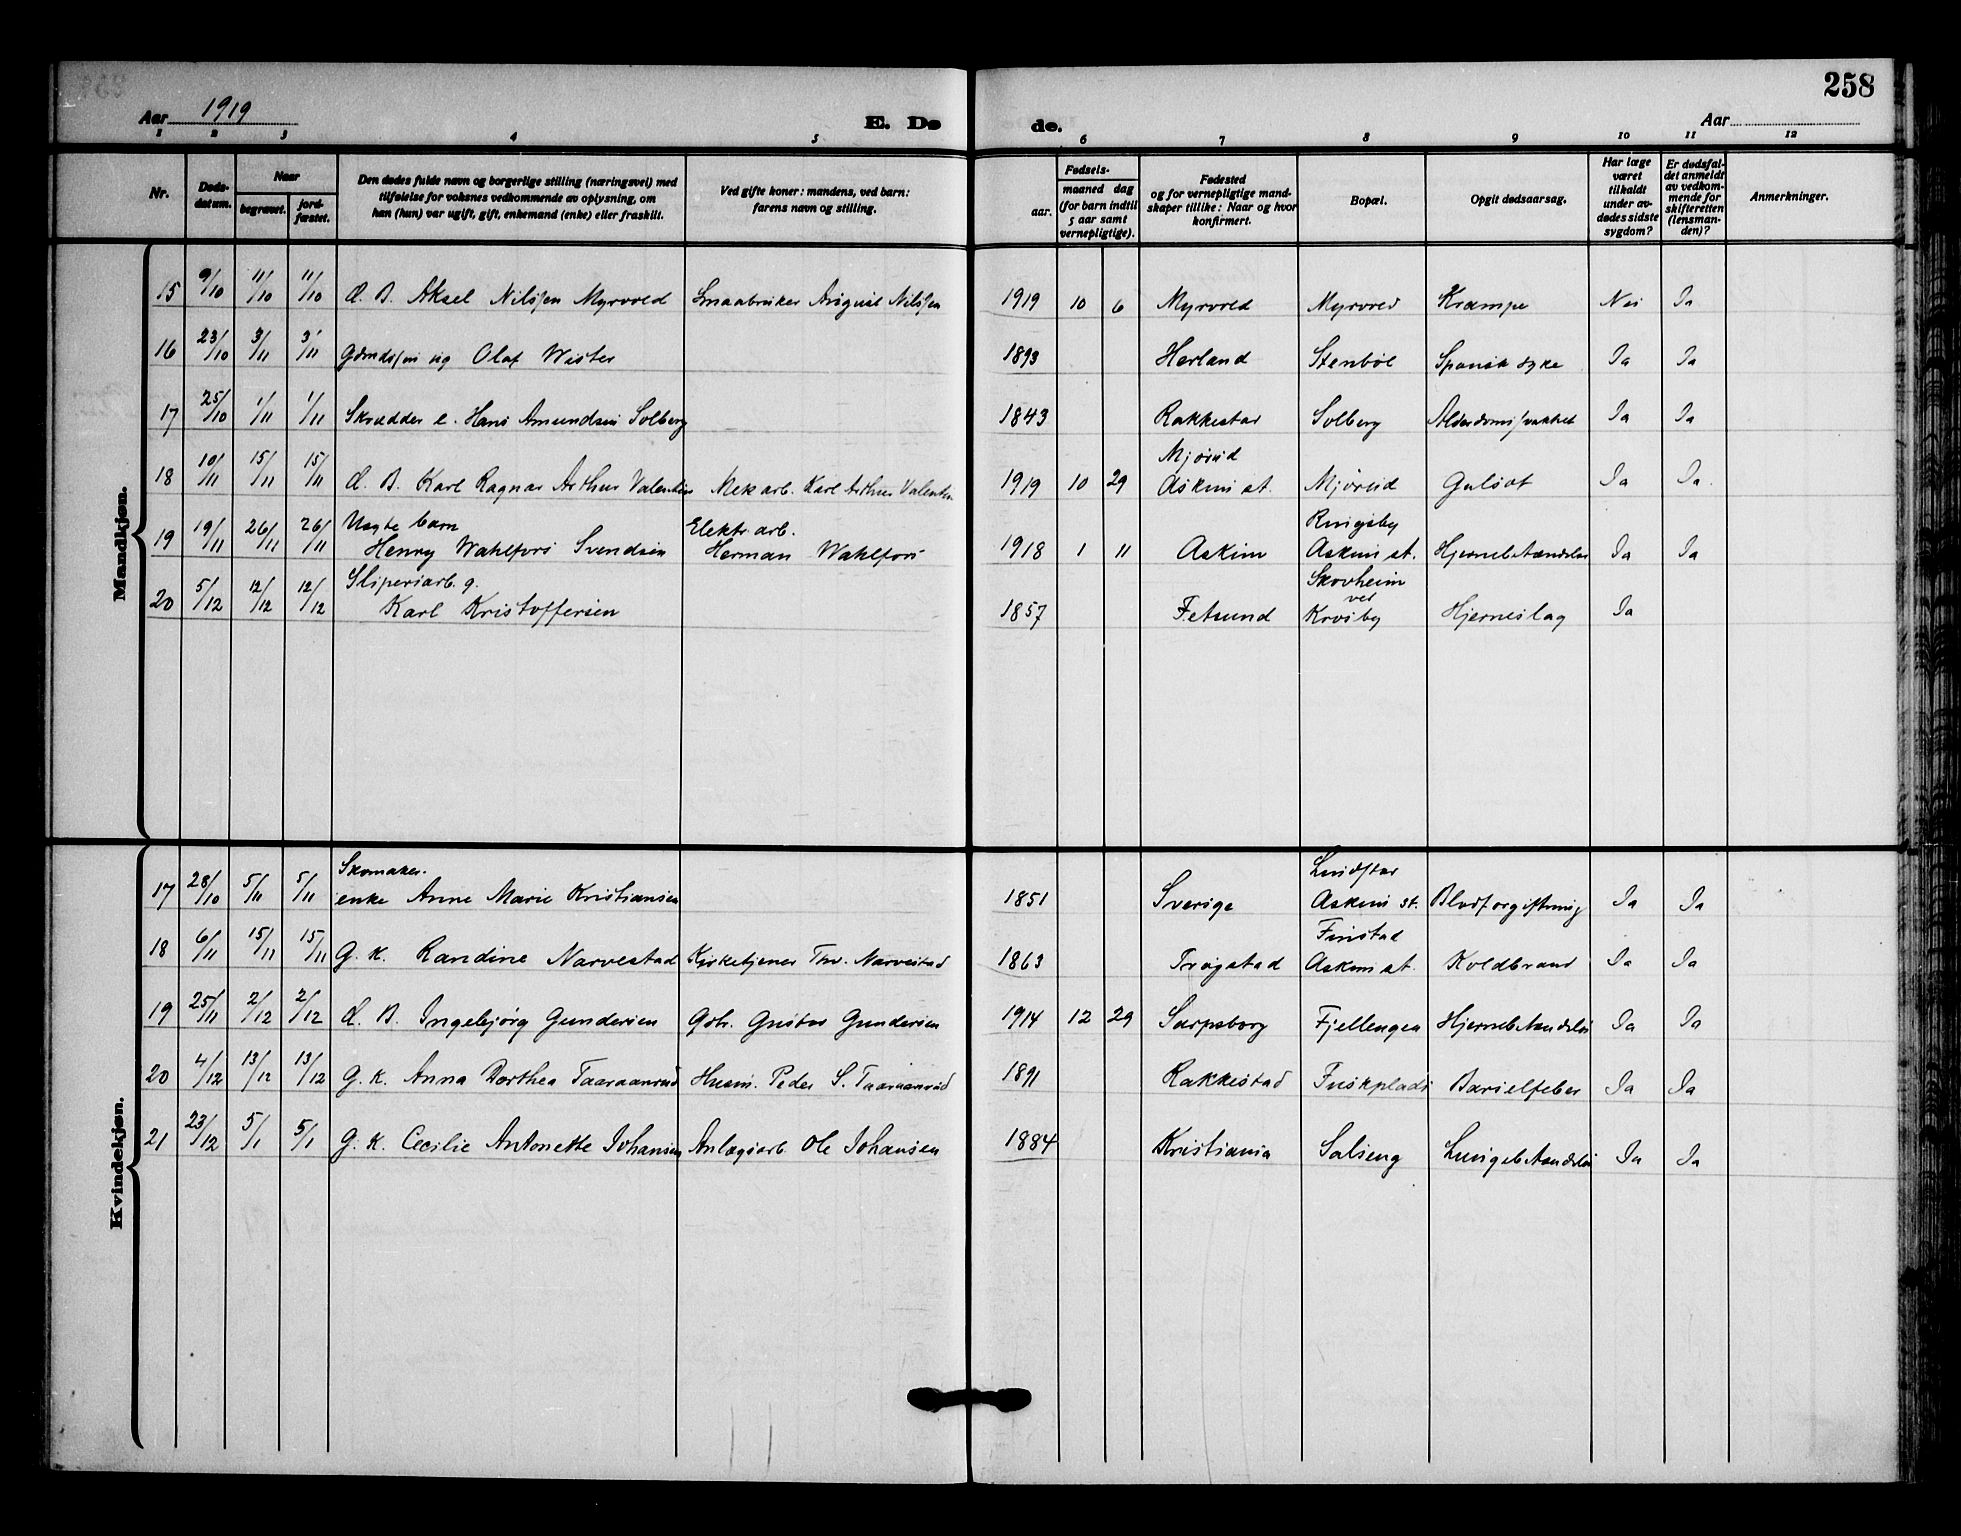 258
Aar 1919
E. Dø
de.
Aar
1 2 3 4 5 6 7 8 9 10 11 12
Nr.
Døds-
datum.
Naar
begravet.
jord-
fæstet.
Den dødes fulde navn og borgerlige stilling (næringsvei) med
tilføielse for voksnes vedkommende av oplysning, om
han (hun) var ugift, gift, enkemand (enke) eller fraskilt.
Ved gifte koner: mandens, ved barn:
farens navn og stilling.
Fødsels-
aar.
maaned dag
(for barn indtil
5 aar samt
vernepligtige).
Fødested
og for vernepligtige mand-
skaper tillike: Naar og hvor
konfirmert.
Bopæl.
Opgit dødsaarsag.
Har læge
været
tilkaldt
under av-
dødes sidste
sygdom?
Er dødsfal-
det anmeldt
av vedkom-
mende for
skifteretten
(lensman-
den)?
Anmerkninger.
Mandkjøn.
15 9/10 11/10 11/10 d. B. Aksel Nilssen Myrvold Smaabruker August Nilssen 1919 10 6 Myrvold Myrvold Krampe Nei Ja
16 23/10 3/11 3/11 Olaf Wister 1893 Herland Stenbøl Spansk syke Ja Ja
17 25/10 1/11 1/11 Skrædder e. Hans Amundsen Solberg 1843 Rakkestad Solberg Alderdomssvakhet Ja Ja
Mjørud
18 10/11 15/11 15/11 d. B. Karl Ragnar Arthur Valentin Mek arb. Karl Arthur Valentin 1919 10 29 Askim st. Mjørud Gulsot Ja Ja.
Uegte barn Elektr. arb. Ringsby
19 19/11 26/11 26/11 Henry Wahlfors Svendsen Herman Wahlfors 1918 1 11 Askim Askim st. Hjernebetændelse Ja Ja
Sliperiarb. g. Skovheim
ved
20 5/12 12/12 12/12 Karl Kristoffersen 1857 Fetsund Krosby Hjerneslag Ja
Kvindekjøn.
Skomaker. Lindstad
17 28/10 5/11 5/11 enke Anne Marie Kristiansen 1851 Sverige Askim st. Blodforgiftning Ja Ja
Finstad
18 6/11 15/11 15/11 G. K. Randine Narvestad Kirketjener Thv. Narvestad 1863 Trøgstad Askim st. Koldbrand Ja Ja
19 25/11 2/12 2/12 d. B. Ingebjørg Gundersen Gbr. Gustav Gundersen 1914 12 29 Sarpsborg Fjellengen Hjernebetændelse Ja Ja
20 4/12 13/12 13/12 G. K. Anna Dorthea Taaraanrud Husm. Peder S. Taaraanrud 1891 Rakkestad Barselfeber Ja Ja
21 23/12 5/1 5/1 G. K. Cecilie Antonette Johansen Anlægsarb. Ole Johansen 1884 Kristiania Salseng Lungebetændelse Ja Ja